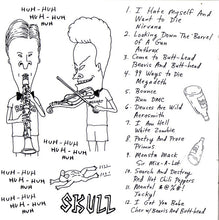 HUH-HUH
HUH-HUH
HUH
HUH-HUH
HUH-HUH
HUH
HUH-HUH
HUH-HUH
HUH
HUH-HUH
HUH-HUH
HUH
SKULL
1. I Hate Myself And
Want to Die
Nirvana
2. Looking Down The Barrel
Of A Gun
Anthrax
3. Come to Butt-head
Beavis And Butt-head
4. 99 Ways to Die
Megadeth
5. Bounce
Run DMC
6. Deuces Are Wild
Aerosmith
7. I Am Hell
White Zombie
8. Poetry And Prose
Primus
9. Monsta Mack
Sir Mix-A-Lot
10. Search And Destroy
Red Hot Chili Peppers
11. Mental
Jackyl
12. I Got You Babe
Cher w/ Beavis And Butt-head